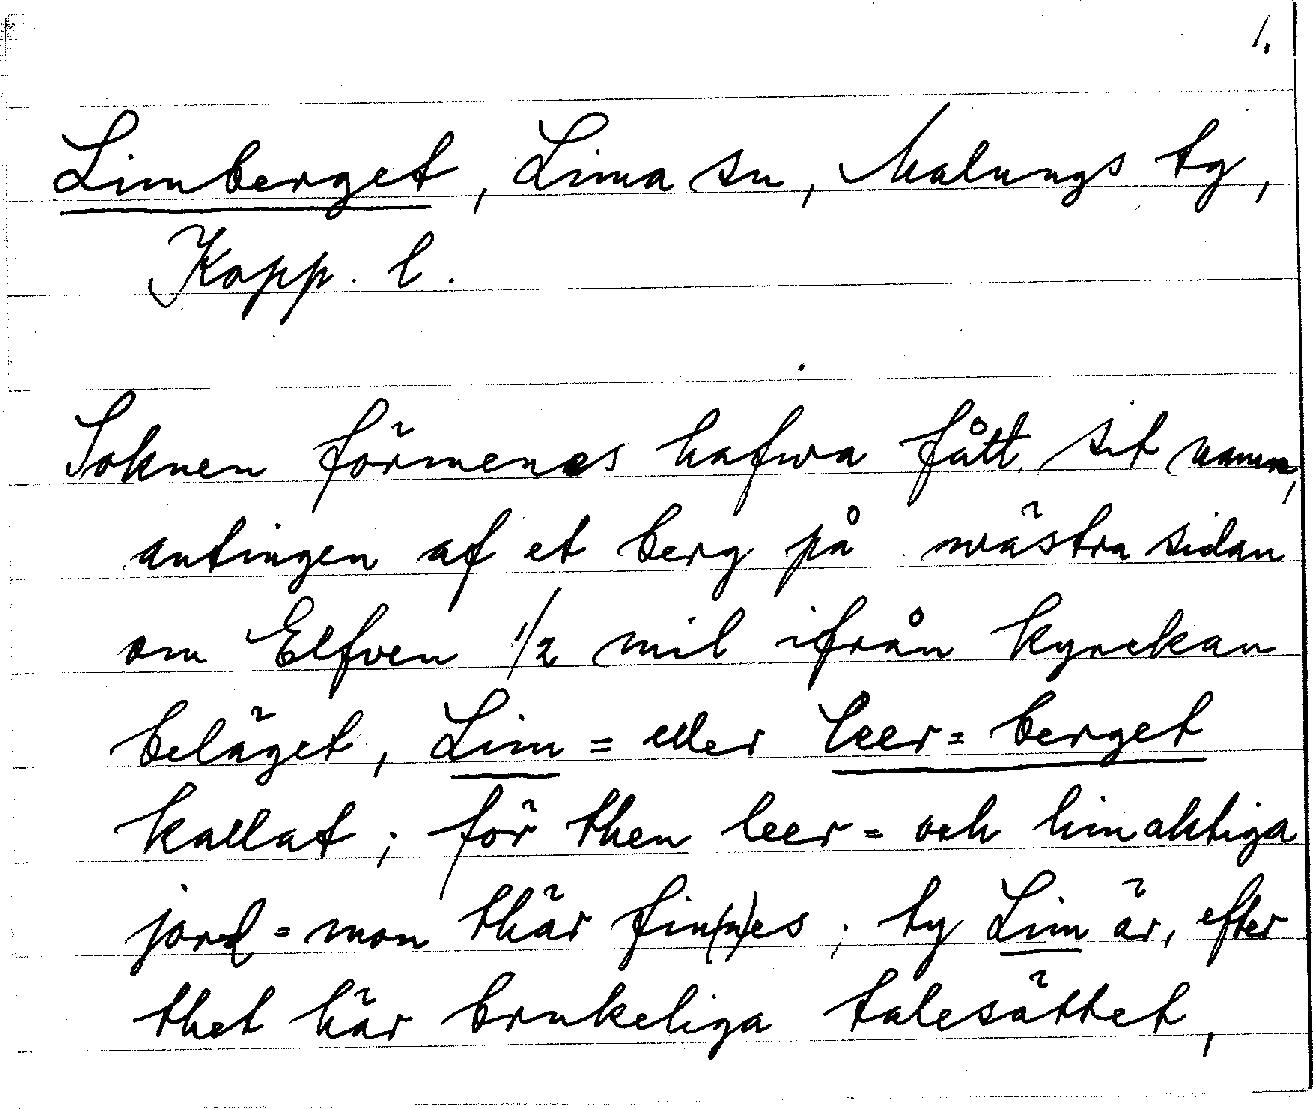 1.
Limberget, Lima sn, Malungs tg,
Kopp. l.
Soknen förmenes hafwa fått sit namn,
antingen af et berg på wästra sidan
om Elfven 1/2 mil ifrån kyrckan
beläget, Lim= eller leer=berget
kallat; för then leer= och limaktiga
jord=mon thär fin(n)es; ty Lim är, efter
thet här brukeliga talesättet,